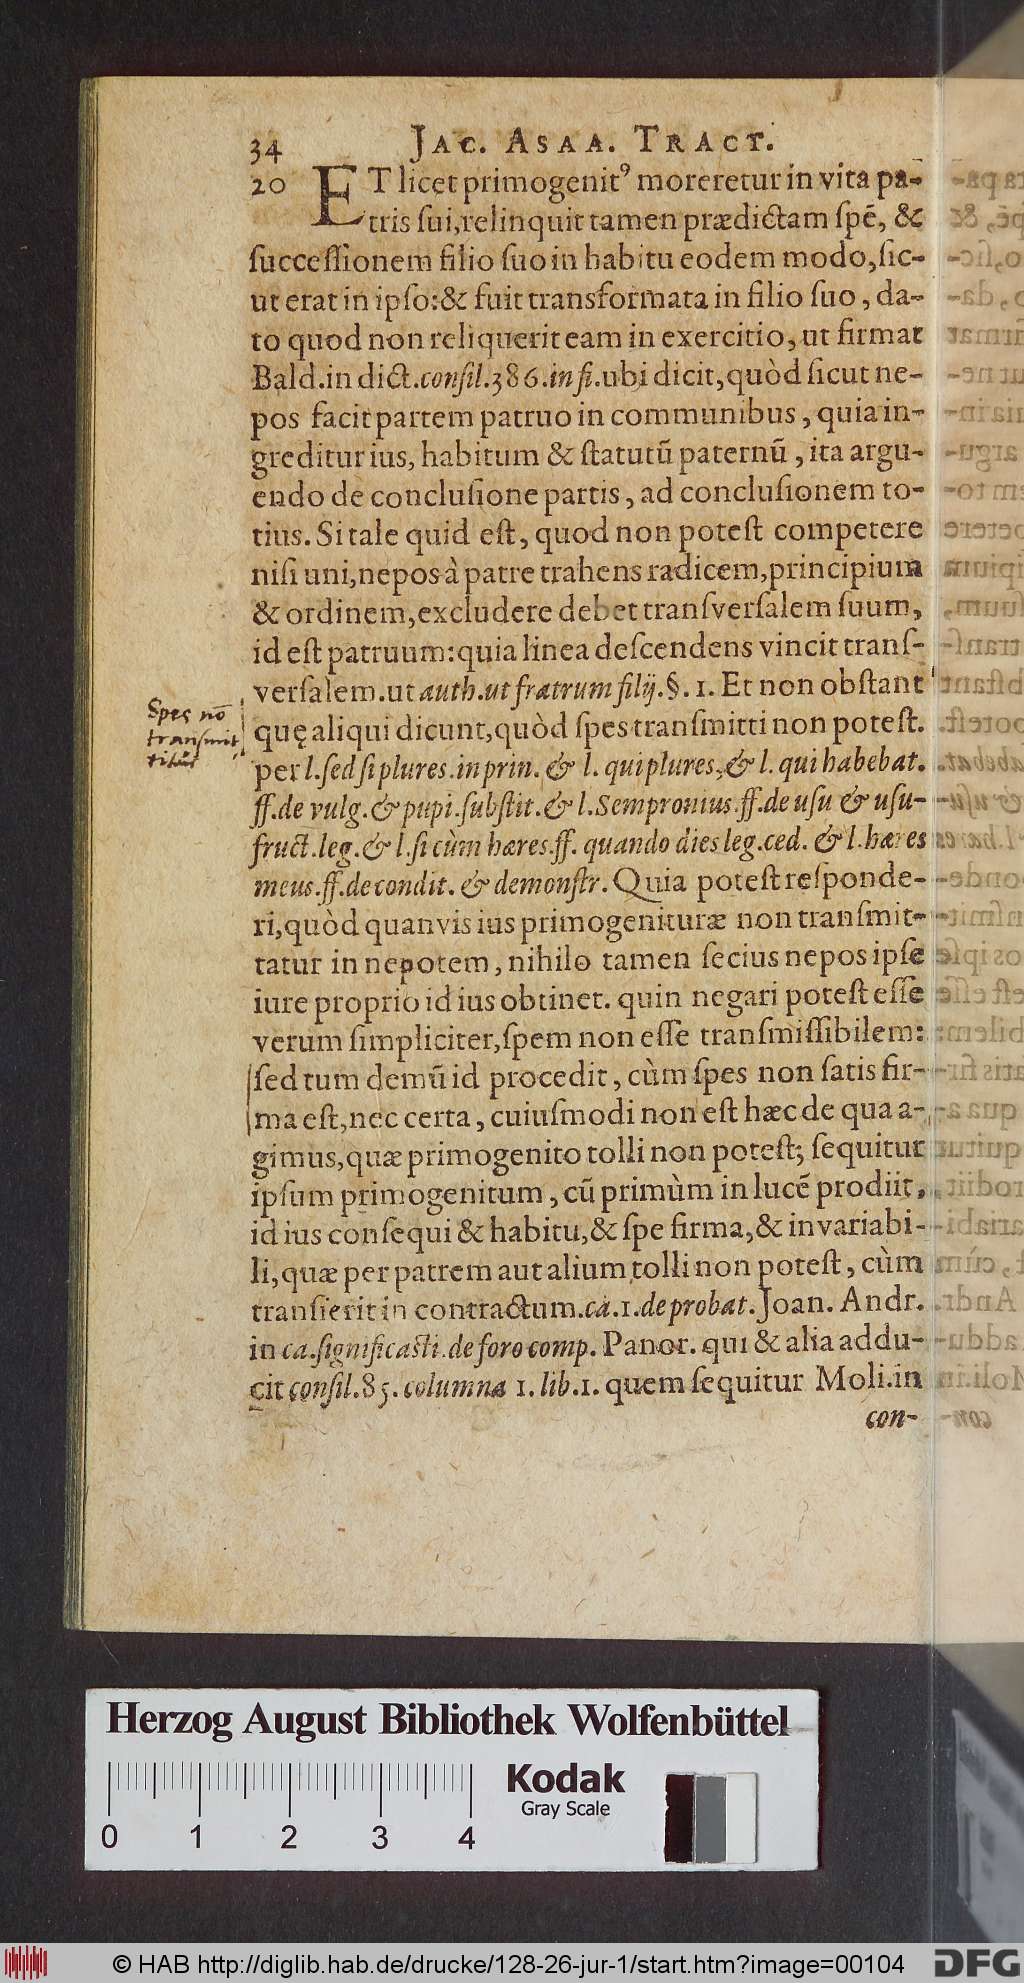 34 JAC. ASAA. TRACT.
20 ET licet primogenitꝰ moreretur in vita pa-
tris sui, relinquit tamen prædictam spē, &
successionem filio suo in habitu eodem modo, sic-
ut erat in ipso: & fuit transformata in filio suo, da-
to quod non reliquerit eam in exercitio, ut firmat
Bald. in dict. consil. 386. in fi. ubi dicit, quòd sicut ne-
pos facit partem patruo in communibus, quia in-
greditur ius, habitum & statutū paternū, ita argu-
endo de conclusione partis, ad conclusionem to-
tius. Si tale quid est, quod non potest competere
nisi uni, nepos à patre trahens radicem, principium
& ordinem, excludere debet transversalem suum,
id est patruum: quia linea descendens vincit trans-
versalem. ut auth. ut fratrum filij. §. 1. Et non obstant
quę aliqui dicunt, quòd spes transmitti non potest.
Spes nō
transmit
titur
per l. sed si plures. in prin. & l. qui plures, & l. qui habebat.
ff. de vulg. & pupi. substit. & l. Sempronius. ff. de usu & usu-
fruct. leg. & l. si cùm hæres. ff. quando dies leg. ced. & l. hæres
meus. ff. de condit. & demonstr. Quia potest responde-
ri, quòd quanvis ius primogenituræ non transmit-
tatur in nepotem, nihilo tamen secius nepos ipse
iure proprio id ius obtinet. quin negari potest esse
verum simpliciter, spem non esse transmissibilem:
sed tum demū id procedit, cùm spes non satis fir-
ma est, nec certa, cuiusmodi non est hæc de qua a-
gimus, quæ primogenito tolli non potest; sequitur
ipsum primogenitum, cū primùm in lucē prodiit,
id ius consequi & habitu, & spe firma, & invariabi-
li, quæ per patrem aut alium tolli non potest, cùm
transierit in contractum. ca. 1. de probat. Joan. Andr.
in ca. significasti. de foro comp. Panor. qui & alia addu-
cit consil. 85. columna 1. lib. 1. quem sequitur Moli. in
con-
Herzog August Bibliothek Wolfenbüttel
Kodak
Gray Scale
0 1 2 3 4
© HAB http://diglib.hab.de/drucke/128-26-jur-1/start.htm?image=00104
DFG